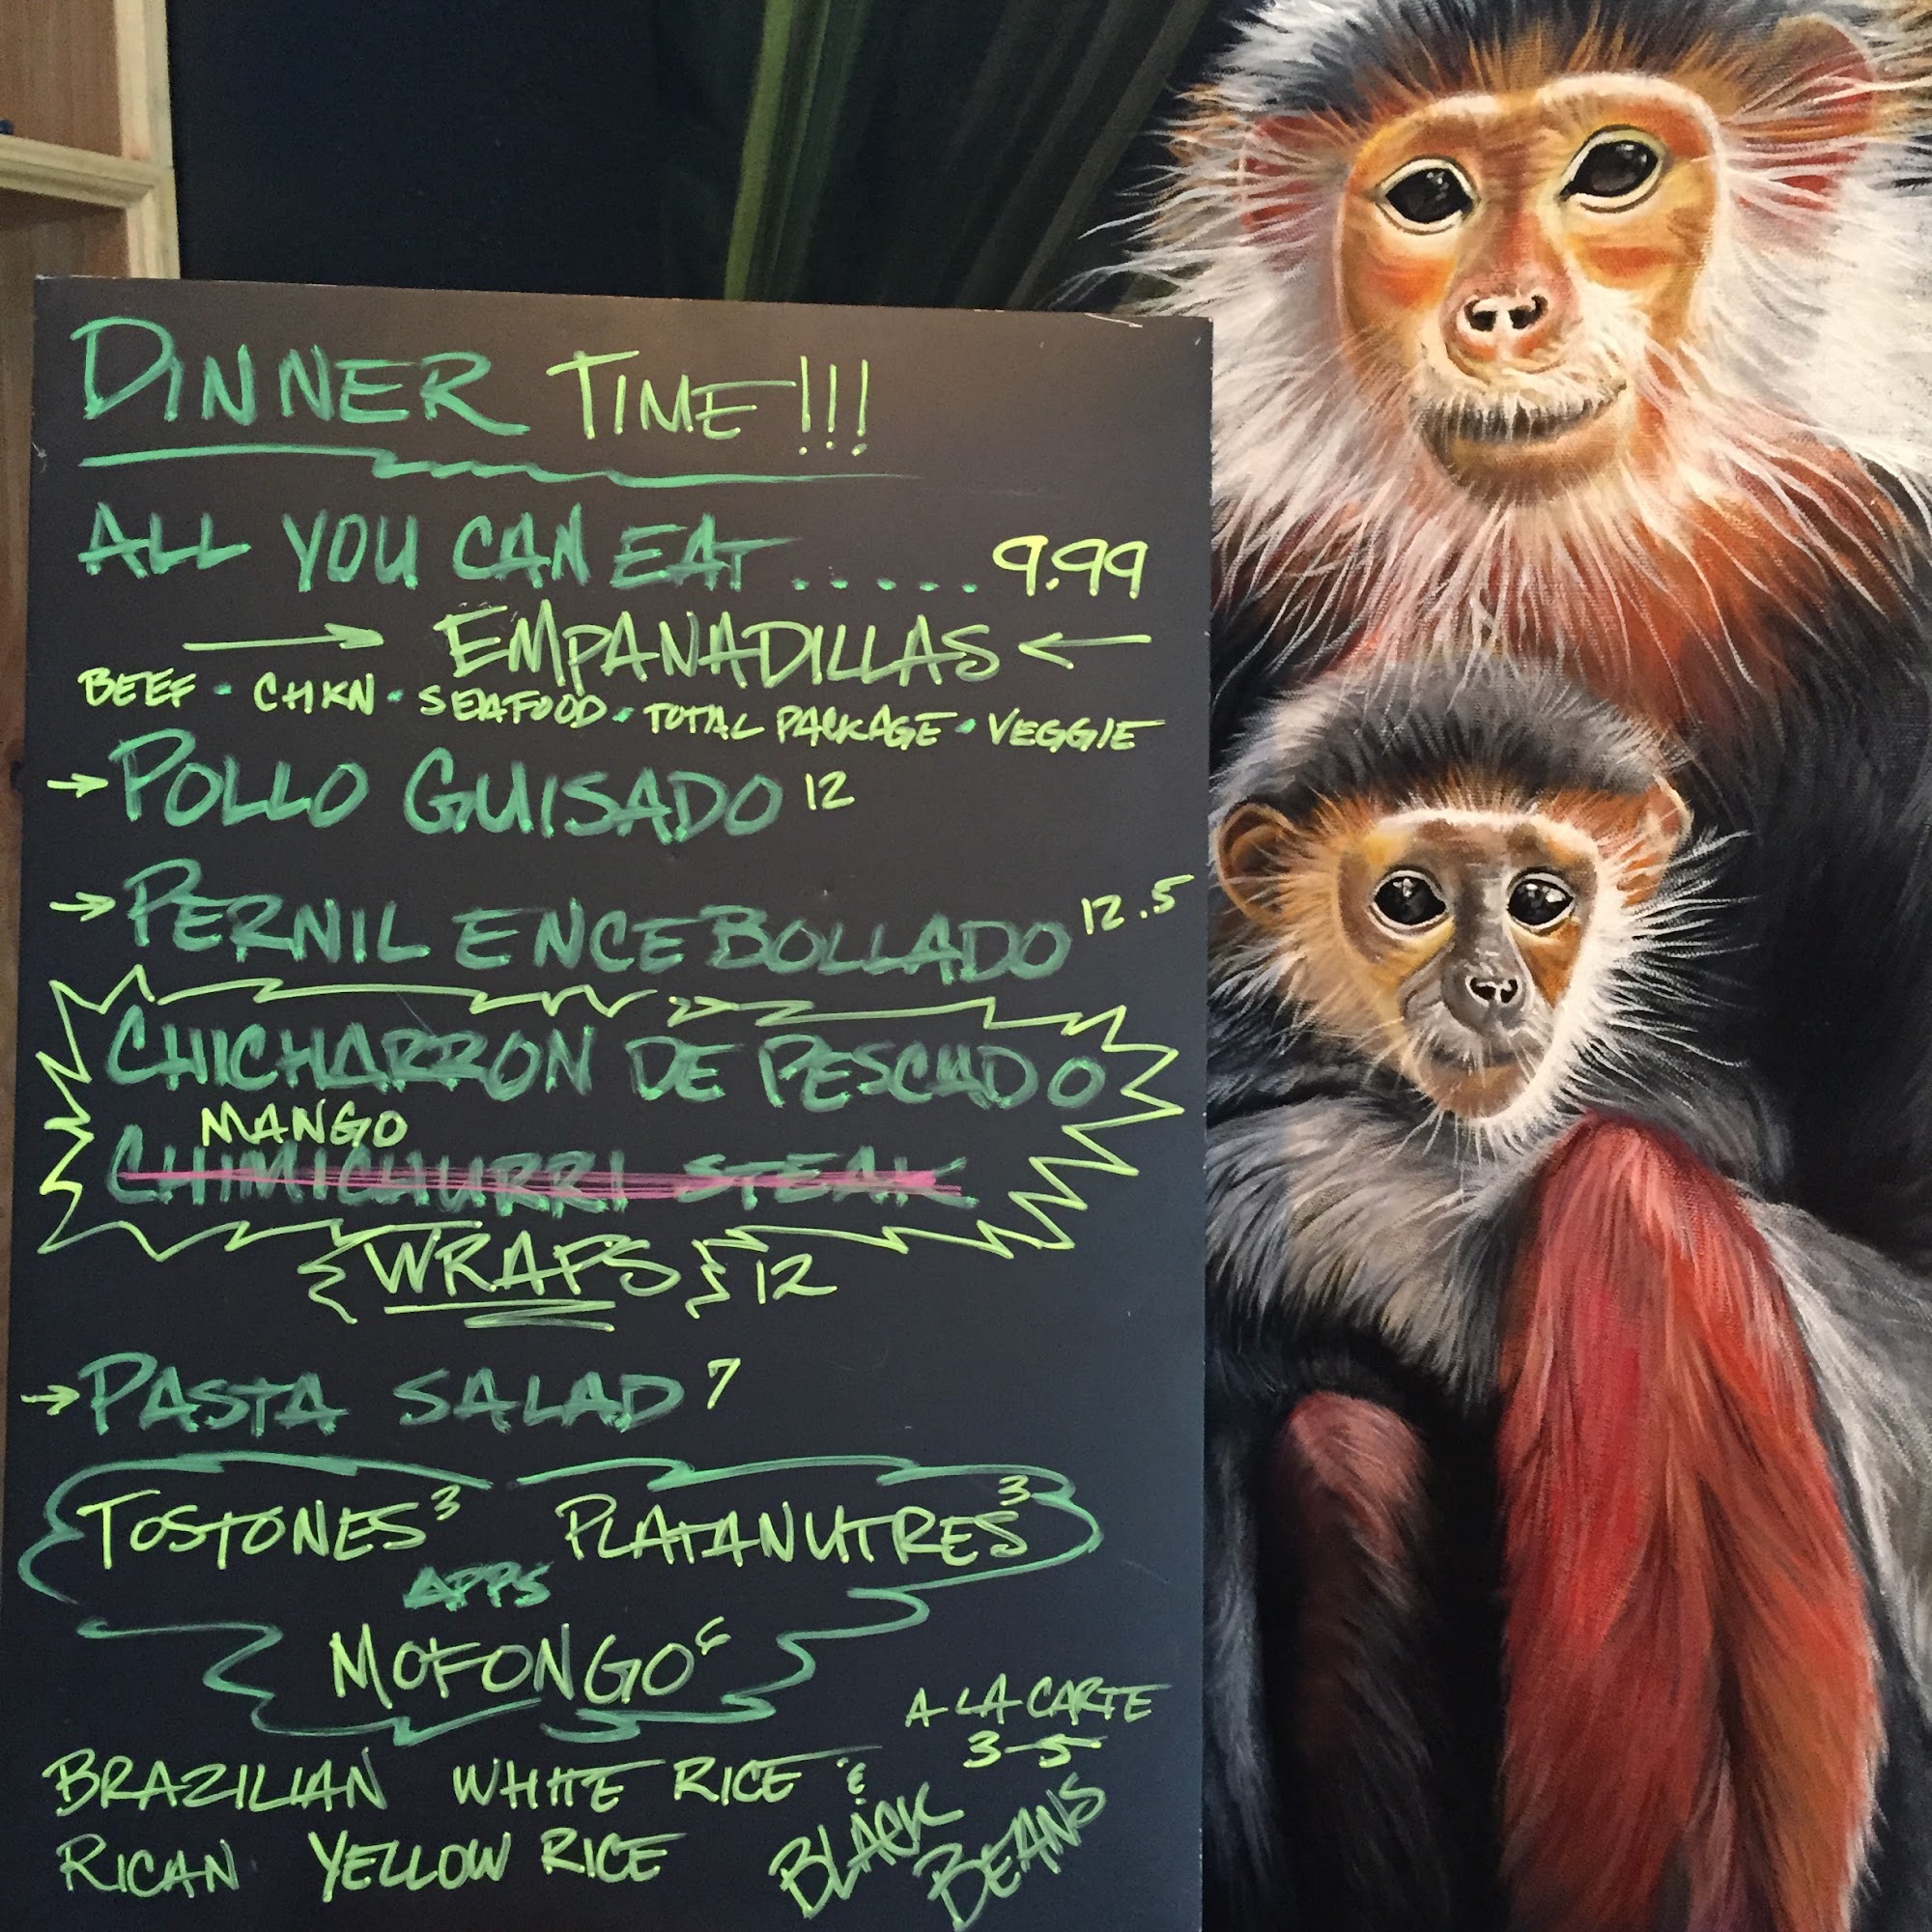 DINNER TIME!!!
ALL YOU CAN EAT ...... 9.99
→ EMPANADILLAS ←
BEEF · CHKN · SEAFOOD · TOTAL PACKAGE · VEGGIE
→ POLLO GUISADO 12
→ PERNIL ENCEBOLLADO 12.5
CHICHARRON DE PESCADO
MANGO
CHIMICHURRI STEAK
{WRAPS} 12
→ PASTA SALAD 7
TOSTONES 3 PLATANUTRES 3
APPS
MOFONGO
A LA CARTE
3-5
BRAZILIAN WHITE RICE &
BLACK BEANS
RICAN YELLOW RICE